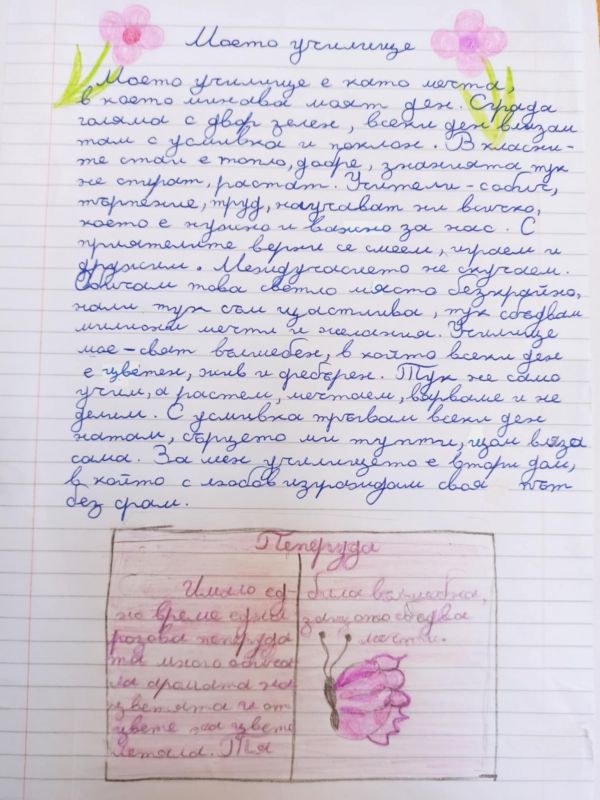 Моето училище
Моето училище е като мечта,
в което минава моят ден. Сграда
голяма с двор зелен, всеки ден влизам
там с усмивка и поклон. В класни-
те стаи е топло, добре, знанията тук
не спират, растат. Учители – с обич,
търпение, труд, научават ни всичко,
което е нужно и важно за нас. С
приятелите верни се смеем, играем и
дружим. Междучасието не скучаем.
Обичам това светло място безкрайно,
нали тук съм щастлива, тук сбъдвам
милиони мечти и желания. Училище
мое – свят вълшебен, в който всеки ден
е цветен, жив и
Тук не само
учим, а растем, мечтаем, вярваме и не
делим. С усмивка тръгвам всеки ден
натам, сърцето ми тупти, щом вляза
сама. За мен училището е втори дом,
в който с любов изграждам своя път
без срам.
Пеперуда
Имало ед-
но време една
розова пеперуда
тя много обича
ла аромата на
цветята и от
цвете на цвете
летяла. Тя
била вълшебна,
защото сбъдва
мечти.